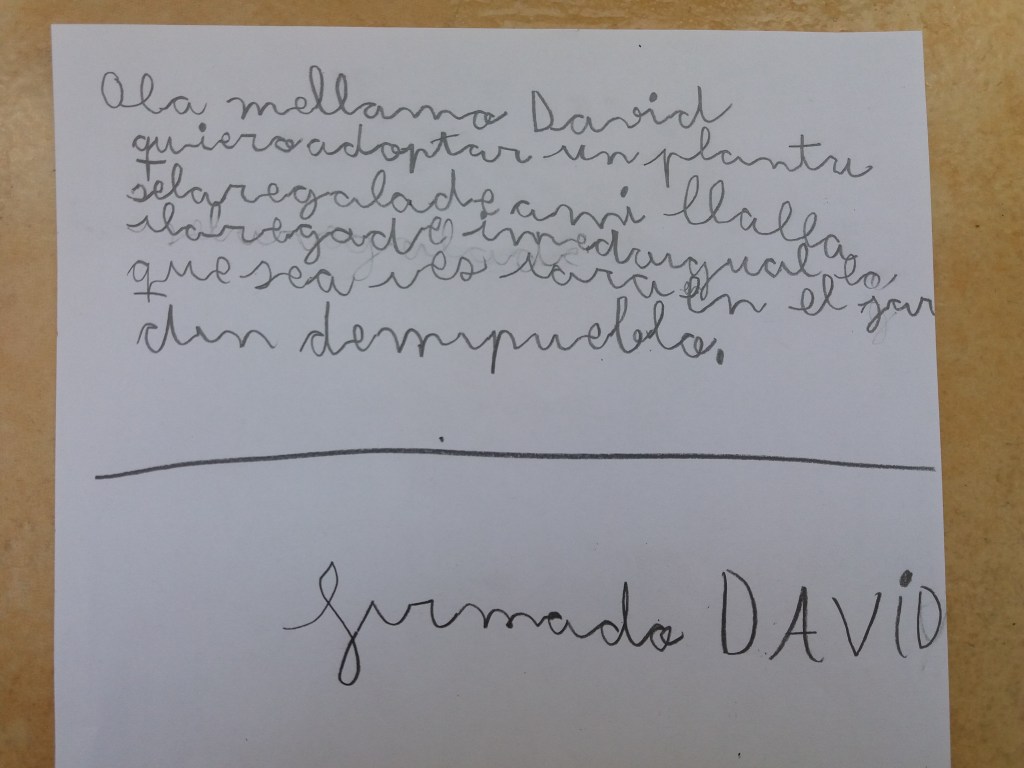 Ola mellamo David
quiero adoptar un plantu
selaregalade ami llalla
ilaregade imedaigual lo
que sea ies rara en el jar
din demipueblo.
firmado DAViD